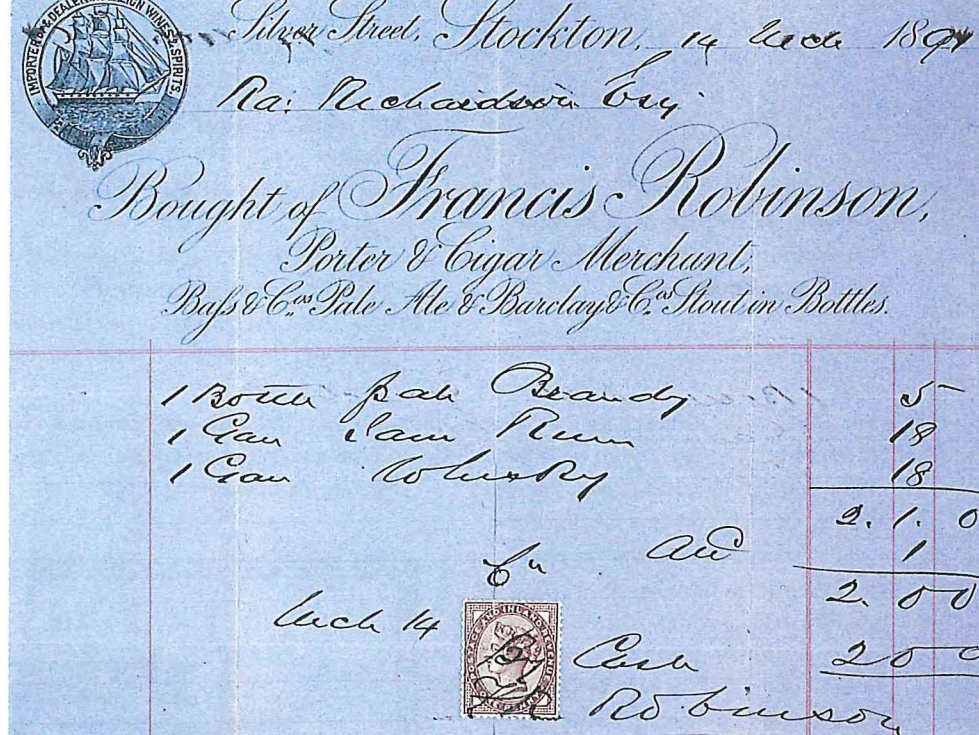 IMPORTER OF & DEALER IN FOREIGN WINES & SPIRITS.
Silver Street, Stockton, 14 Mch 1891
Ra: Richardson Esq.
Bought of Francis Robinson,
Porter & Cigar Merchant,
Bass & Co.'s Pale Ale & Barclay & Co.'s Stout in Bottles.
1 Bottle pale Brandy 5
1 Gan Jam Rum 18
1 Gan Whisky 18
2. 1. 0
All 1
2. 0 0
Cr
Mch 14 Cash 2 0 0
POSTAGE AND INLAND REVENUE
ONE PENNY
Robinson